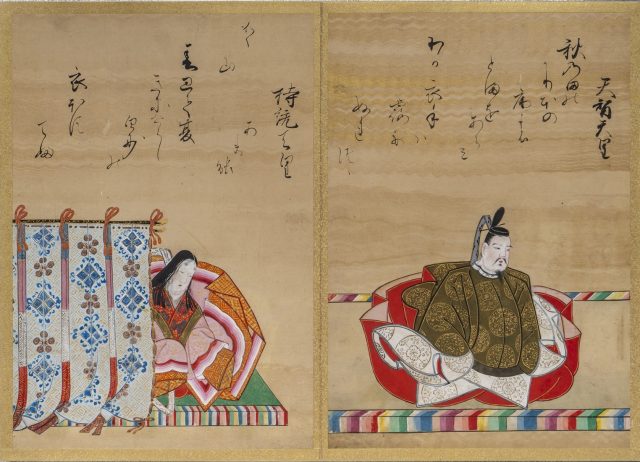 天智天皇
秋乃田の
かりほの
庵の
とまを
あらみ
わか衣手ハ
露に
ぬれ
つゝ
持統天皇
春過て夏
きにけらし
白妙の
衣ほす
てふ
山